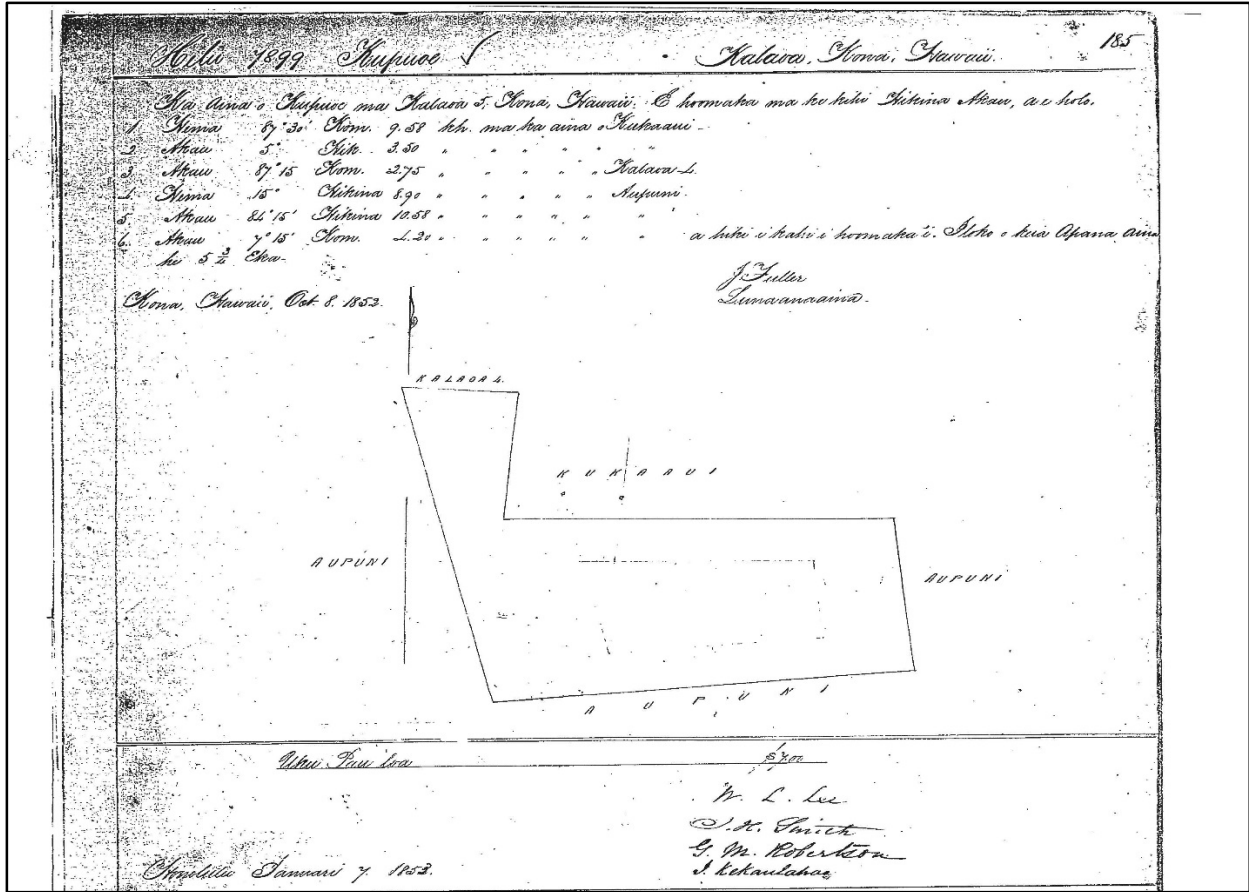 Helu 7899 Kupuoe Kalaoa, Kona, Hawaii. 185
Ka aina o Kupuoe ma Kalaoa 5, Kona, Hawaii. E hoomaka ma ke kihi Hikina Akau, a e holo.
1. Hema 87° 30' Kom. 9.58 kh. ma ka aina o Kukaaui
2. Akau 5° Hik. 3.50 " " " " " "
3. Akau 87° 15 Kom. 2.75 " " " " " Kalaoa 4.
4. Hema 15° Hikina 8.90 " " " " " Aupuni.
5 Akau 84° 15' Hikina 10.58 " " " " " "
6. Akau 7° 15' Kom. 4.20 " " " " " " a hiki i kahi i hoomaka'i. Iloko o keia Apana aina
he 5 3/4 Eka.
J. Fuller
Luna ana aina.
Kona, Hawaii, Oct. 8. 1852.
KALAOA 4.
KUKAAUI
AUPUNI
AUPUNI
AUPUNI
Uku Pau loa $7.00
W. L. Lee
J. H. Smith
G. M. Robertson
J. Kekaulahao
Honolulu Januari 7. 1853.